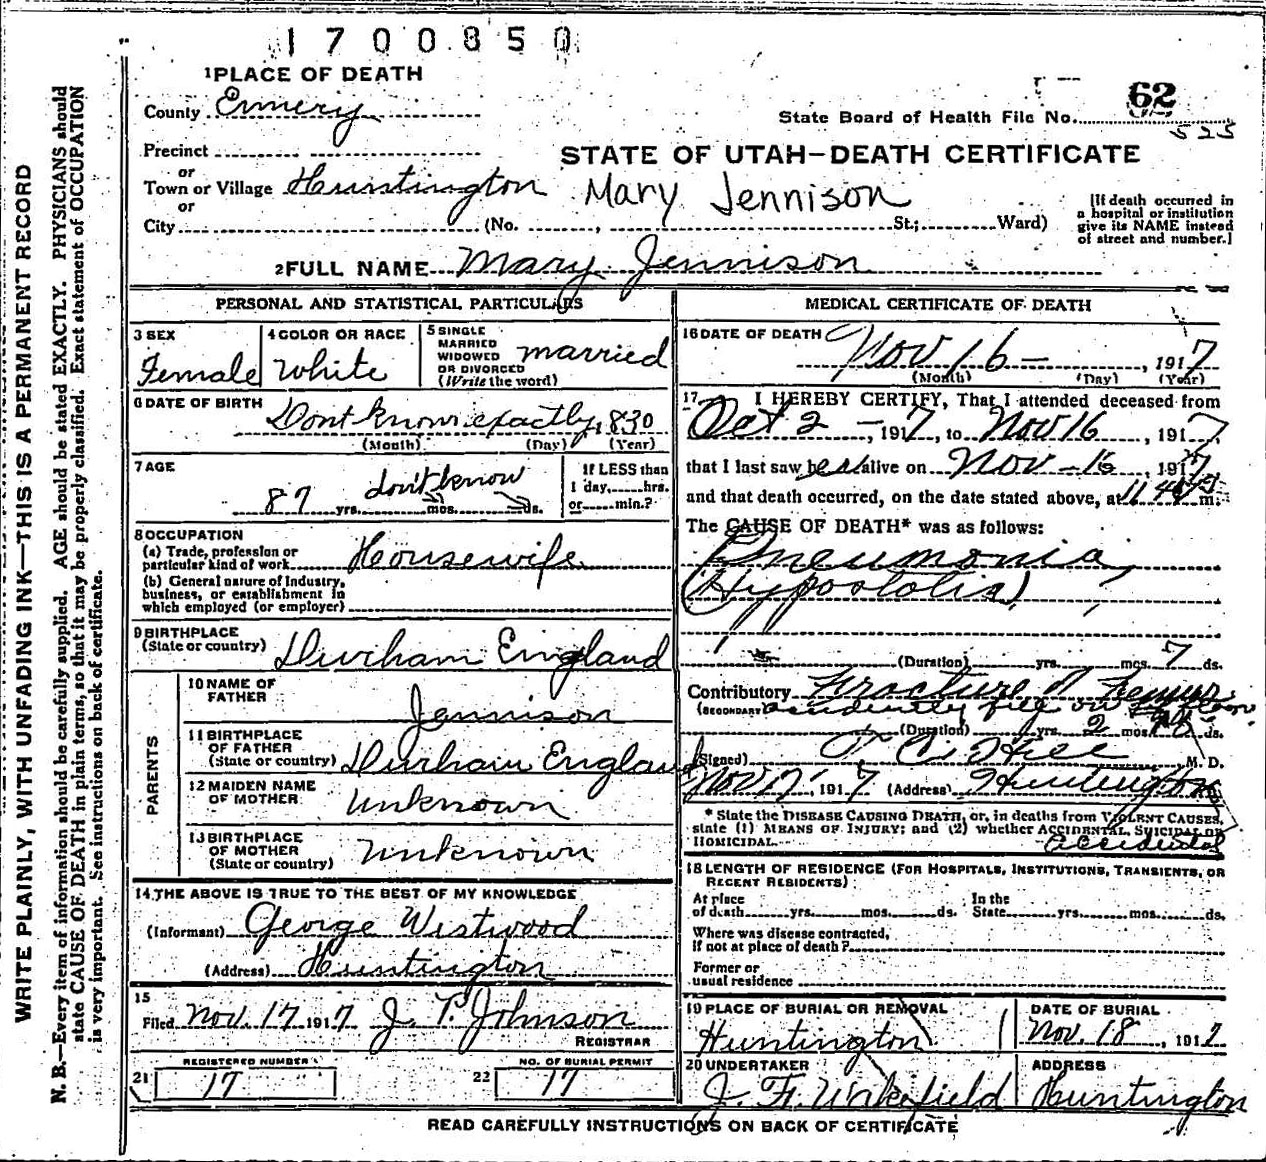 1700850
1 PLACE OF DEATH
County Emmery
62
State Board of Health File No.
525
Precinct
STATE OF UTAH—DEATH CERTIFICATE
or
Town or Village Huntington Mary Jennison
or
City (No. , St.; Ward)
[If death occurred in
a hospital or institution
give its NAME instead
of street and number.]
2 FULL NAME Mary Jennison
PERSONAL AND STATISTICAL PARTICULARS
3 SEX
Female
4 COLOR OR RACE
White
5 SINGLE
MARRIED
WIDOWED
OR DIVORCED
(Write the word)
married
6 DATE OF BIRTH
Dont know exactly, 1830
(Month) (Day) (Year)
7 AGE
87 yrs. don't know mos. ds.
If LESS than
1 day, hrs.
or min.?
8 OCCUPATION
(a) Trade, profession or
particular kind of work Housewife
(b) General nature of Industry,
business, or establishment in
which employed (or employer)
9 BIRTHPLACE
(State or country) Durham England
PARENTS
10 NAME OF
FATHER Jennison
11 BIRTHPLACE
OF FATHER
(State or country) Durham England
12 MAIDEN NAME
OF MOTHER Unknown
13 BIRTHPLACE
OF MOTHER
(State or country) Unknown
14 THE ABOVE IS TRUE TO THE BEST OF MY KNOWLEDGE
(Informant) George Westwood
(Address) Huntington
15
Filed Nov. 17 1917 J. P. Johnson
REGISTRAR
REGISTERED NUMBER
21 17
NO. OF BURIAL PERMIT
22 17
MEDICAL CERTIFICATE OF DEATH
16 DATE OF DEATH
Nov 16 , 1917
(Month) (Day) (Year)
17 I HEREBY CERTIFY, That I attended deceased from
Oct 2 , 1917, to Nov 16 , 1917,
that I last saw her alive on Nov 16 , 1917,
and that death occurred, on the date stated above, at m.
The CAUSE OF DEATH* was as follows:
Pneumonia,
(Hypostatic)
(Duration) yrs. mos. 7 ds.
Contributory Fracture of Femur
(SECONDARY) accidently fell on floor
(Duration) yrs. mos. ds.
(Signed) T. C. Hill M. D.
Nov 17, 1917 (Address) Huntington
* State the DISEASE CAUSING DEATH, or, in deaths from VIOLENT CAUSES,
state (1) MEANS OF INJURY; and (2) whether ACCIDENTAL, SUICIDAL OR
HOMICIDAL. accidental
18 LENGTH OF RESIDENCE (FOR HOSPITALS, INSTITUTIONS, TRANSIENTS, OR
RECENT RESIDENTS)
At place
of death yrs. mos. ds.
In the
State yrs. mos. ds.
Where was disease contracted,
if not at place of death?
Former or
usual residence
19 PLACE OF BURIAL OR REMOVAL
Huntington
DATE OF BURIAL
Nov. 18 , 1917
20 UNDERTAKER
J. F. Wakefield
ADDRESS
Huntington
READ CAREFULLY INSTRUCTIONS ON BACK OF CERTIFICATE
WRITE PLAINLY, WITH UNFADING INK—THIS IS A PERMANENT RECORD
N. B.—Every item of information should be carefully supplied. AGE should be stated EXACTLY. PHYSICIANS should
state CAUSE OF DEATH in plain terms, so that it may be properly classified. Exact statement of OCCUPATION
is very important. See instructions on back of certificate.